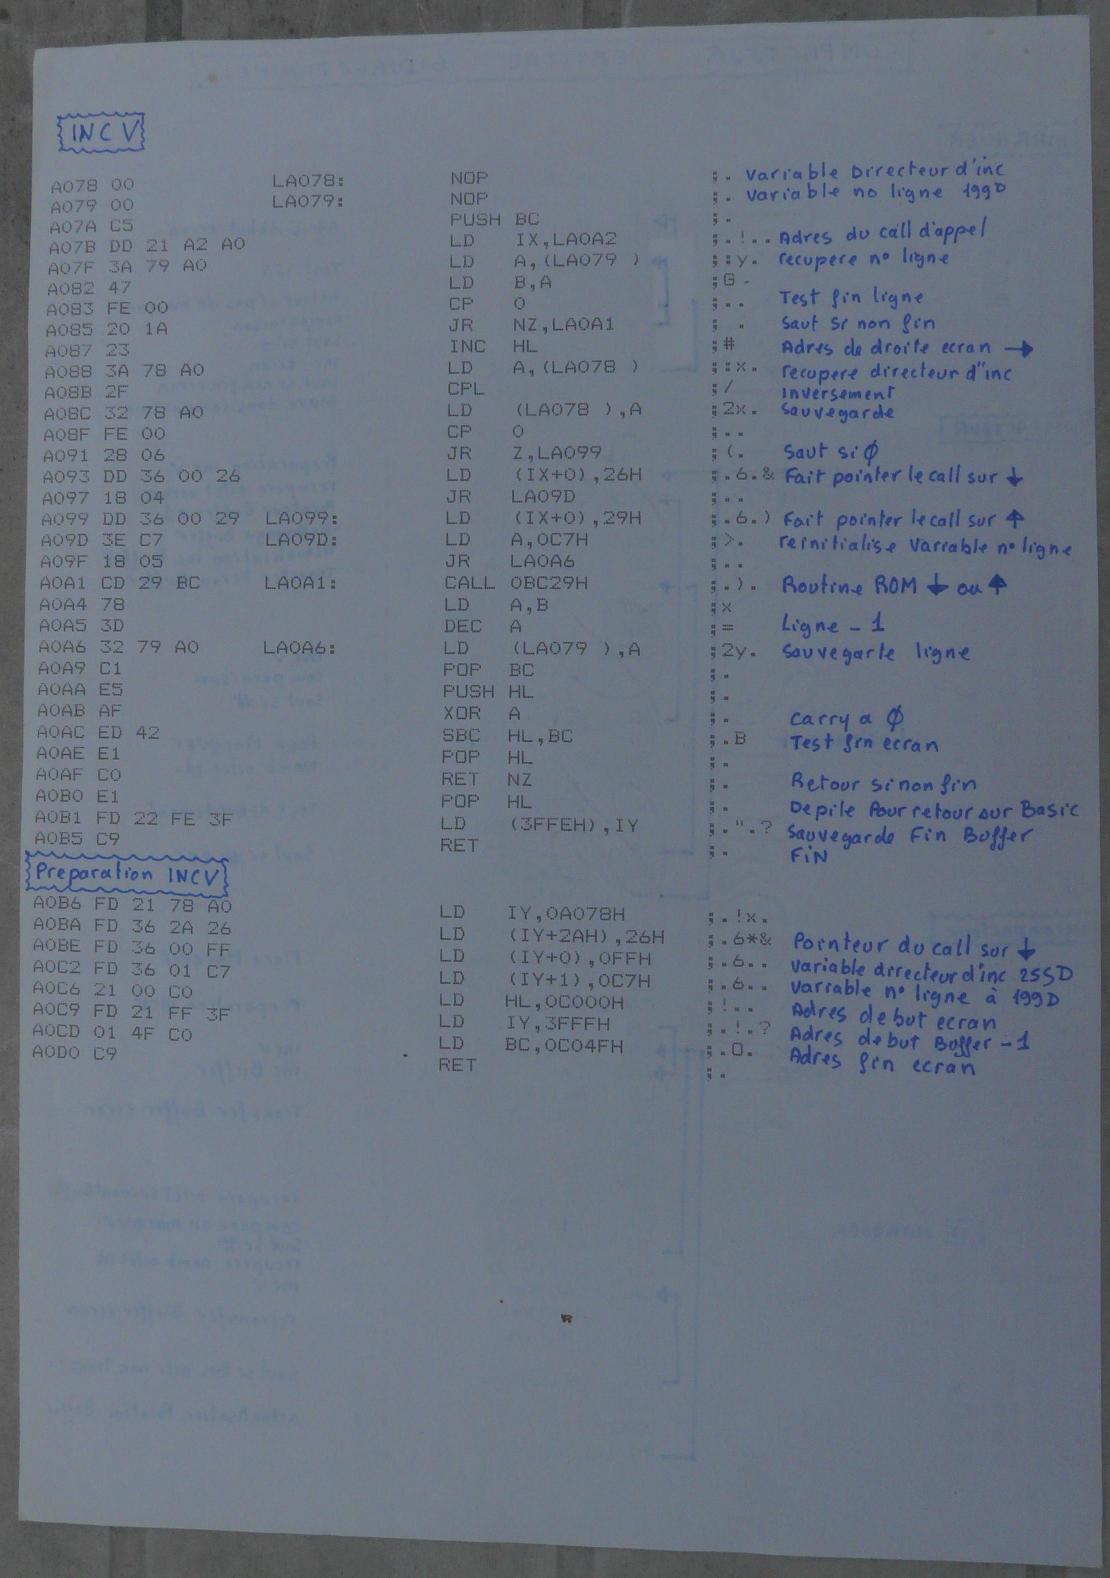 INCV
A078 00 LA078: NOP ;. variable Directeur d'inc
A079 00 LA079: NOP ;. variable no ligne 199D
A07A C5 PUSH BC ;.
A07B DD 21 A2 A0 LD IX,LA0A2 ;.!.. Adres du call d'appel
A07F 3A 79 A0 LD A,(LA079 ) ;:y. recupere n° ligne
A082 47 LD B,A ;G
A083 FE 00 CP 0 ;.. Test fin ligne
A085 20 1A JR NZ,LA0A1 ; . Saut si non fin
A087 23 INC HL ;# Adres de droite ecran →
A088 3A 78 A0 LD A,(LA078 ) ;:x. recupere directeur d'inc
A08B 2F CPL ;/ inversement
A08C 32 78 A0 LD (LA078 ),A ;2x. Sauvegarde
A08F FE 00 CP 0 ;..
A091 28 06 JR Z,LA099 ;(. Saut si Ø
A093 DD 36 00 26 LD (IX+0),26H ;.6.& Fait pointer le call sur ↓
A097 18 04 JR LA09D ;..
A099 DD 36 00 29 LA099: LD (IX+0),29H ;.6.) Fait pointer le call sur ↑
A09D 3E C7 LA09D: LD A,0C7H ;>. reinitialise variable n° ligne
A09F 18 05 JR LA0A6 ;..
A0A1 CD 29 BC LA0A1: CALL 0BC29H ;.). Routine ROM ↓ ou ↑
A0A4 78 LD A,B ;x
A0A5 3D DEC A ;= Ligne - 1
A0A6 32 79 A0 LA0A6: LD (LA079 ),A ;2y. Sauvegarde ligne
A0A9 C1 POP BC ;.
A0AA E5 PUSH HL ;.
A0AB AF XOR A ;. Carry a Ø
A0AC ED 42 SBC HL,BC ;.B Test fin ecran
A0AE E1 POP HL ;.
A0AF C0 RET NZ ;. Retour si non fin
A0B0 E1 POP HL ;. Depile Pour retour sur Basic
A0B1 FD 22 FE 3F LD (3FFEH),IY ;.".? Sauvegarde Fin Buffer
A0B5 C9 RET ;. FIN
Preparation INCV
A0B6 FD 21 78 A0 LD IY,0A078H ;.!x.
A0BA FD 36 2A 26 LD (IY+2AH),26H ;.6*& Pointeur du call sur ↓
A0BE FD 36 00 FF LD (IY+0),0FFH ;.6.. variable directeur d'inc 255D
A0C2 FD 36 01 C7 LD (IY+1),0C7H ;.6.. variable n° ligne à 199D
A0C6 21 00 C0 LD HL,0C000H ;!.. Adres debut ecran
A0C9 FD 21 FF 3F LD IY,3FFFH ;.!.? Adres debut Buffer -1
A0CD 01 4F C0 LD BC,0C04FH ;.O. Adres fin ecran
A0D0 C9 RET ;.